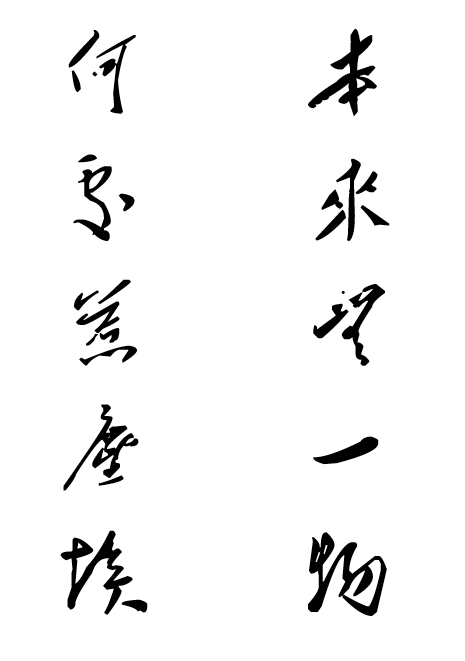 本來無一物
何處惹塵埃